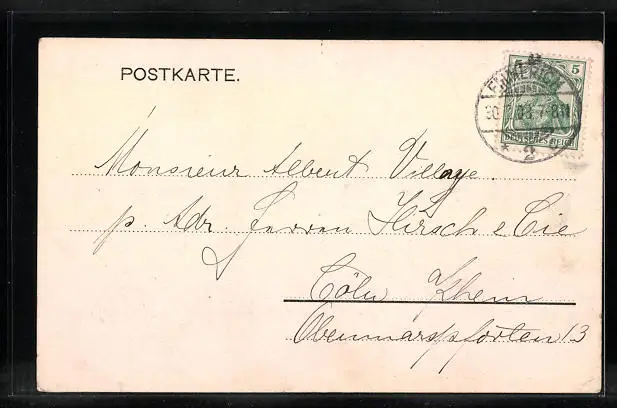 POSTKARTE.
5
EMMERICH
DEUTSCHES REICH
* 2
Monsieur Albert Village.
p. Adr. Herren Hirsch & Cie
Cöln Rhein
Obenmarspforten 13